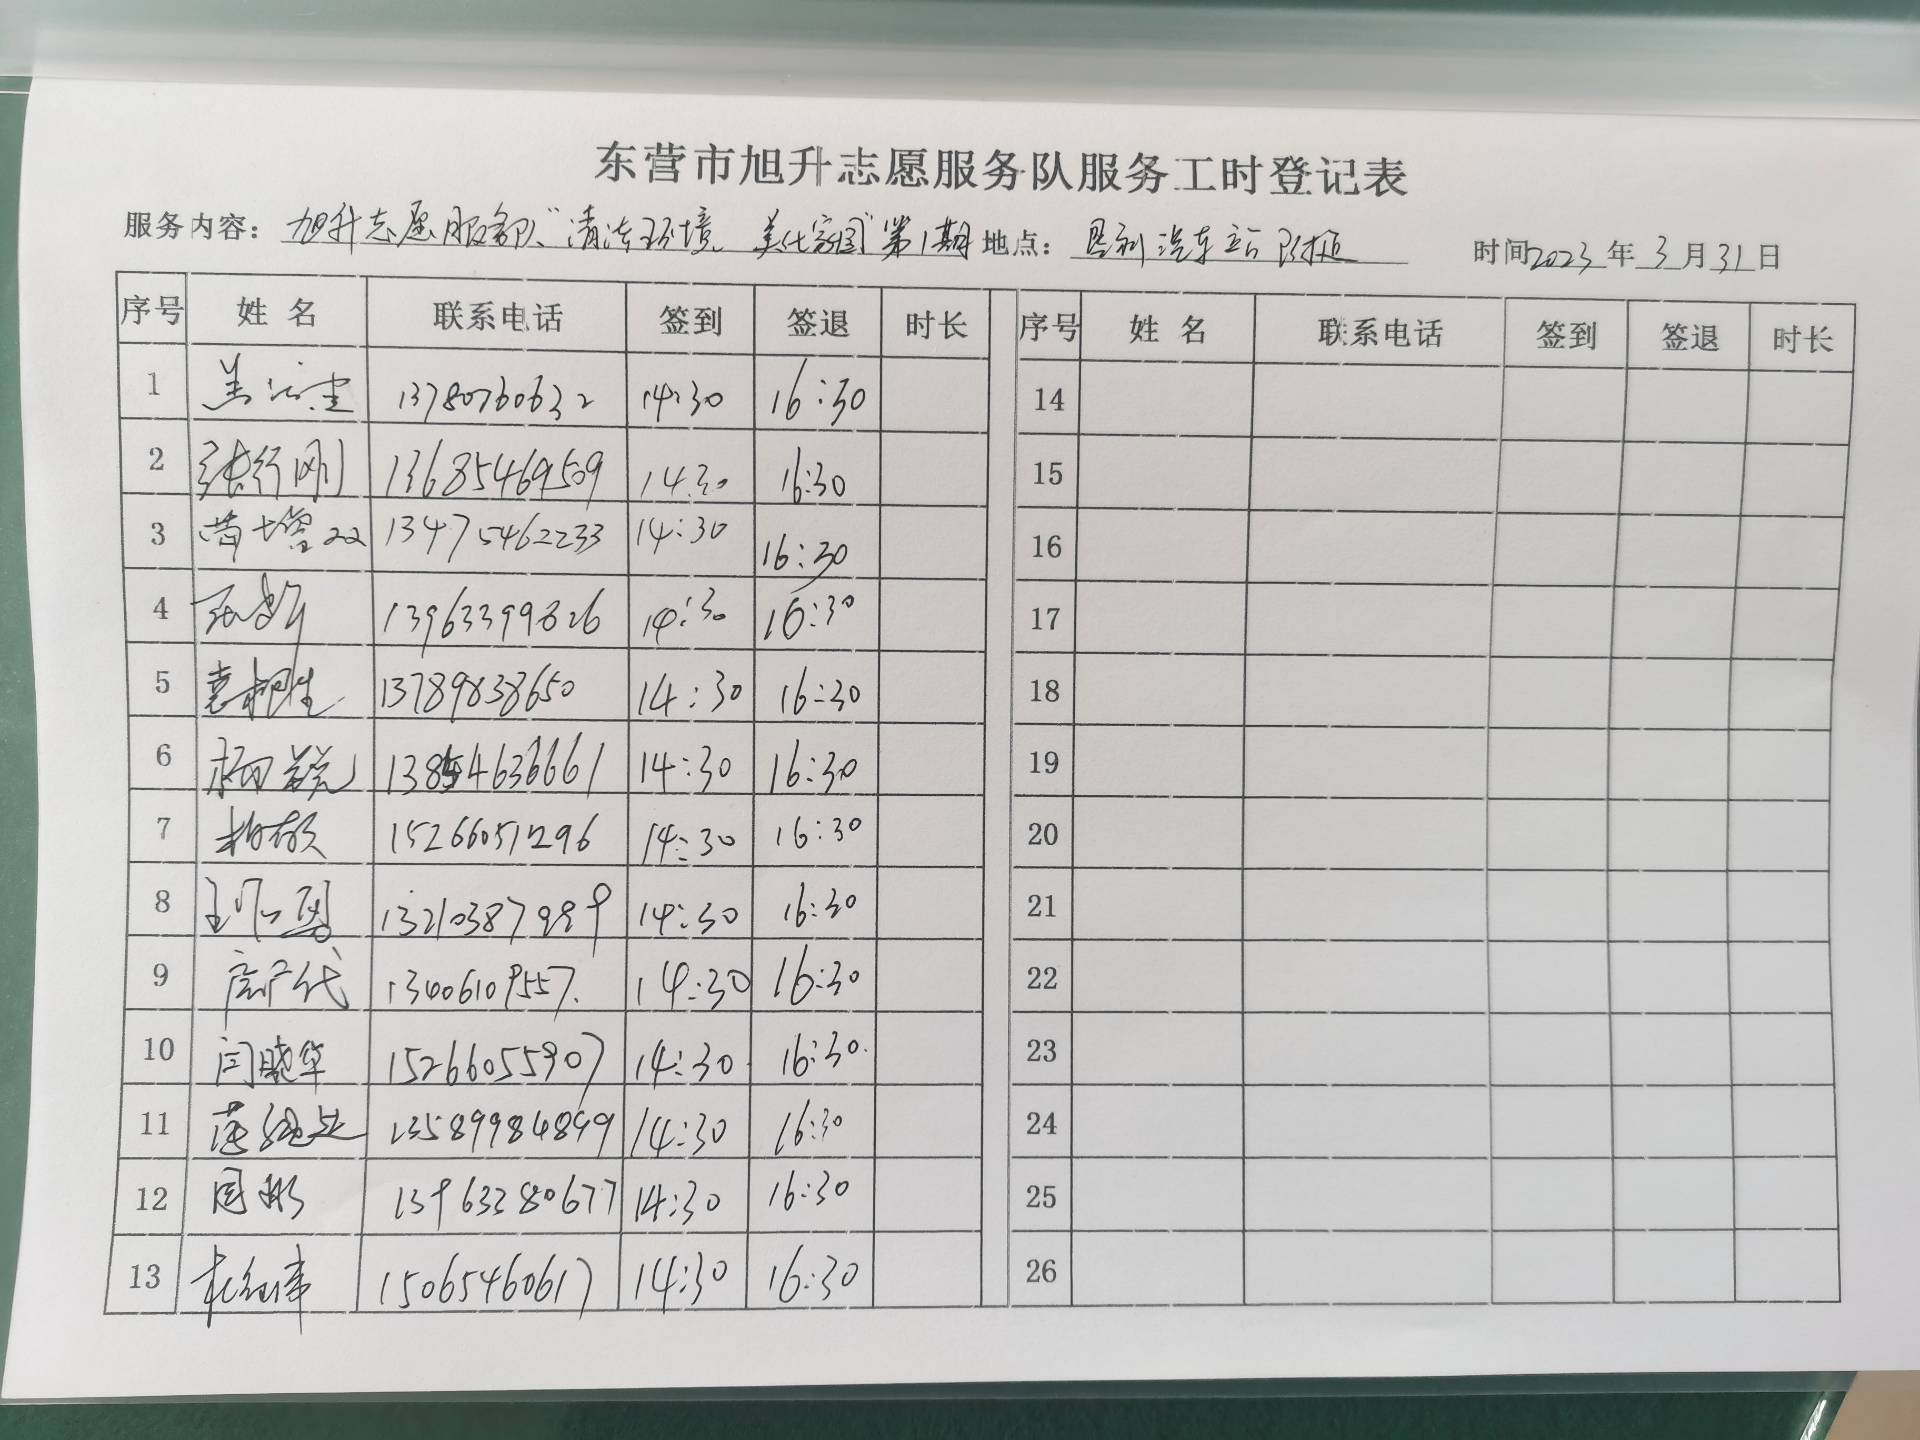 东营市旭升志愿服务队服务工时登记表
服务内容：旭升志愿服务队“清洁环境、美化家园”第1期 地点：垦利汽车站附近 时间2023年3月31日
序号 姓名 联系电话 签到 签退 时长 序号 姓名 联系电话 签到 签退 时长
1 13780760632 14:30 16:30 14
2 张行刚 13685469509 14:30 16:30 15
3 13475462233 14:30 16:30 16
4 13963399826 14:30 16:30 17
5 袁相胜 13789838650 14:30 16:30 18
6 13854636661 14:30 16:30 19
7 15266051296 14:30 16:30 20
8 14:30 16:30 21
9 13406109557 14:30 16:30 22
10 闫晓华 15266055907 14:30 16:30 23
11 13589984899 14:30 16:30 24
12 周彬 13963280677 14:30 16:30 25
13 杜红伟 15065460617 14:30 16:30 26